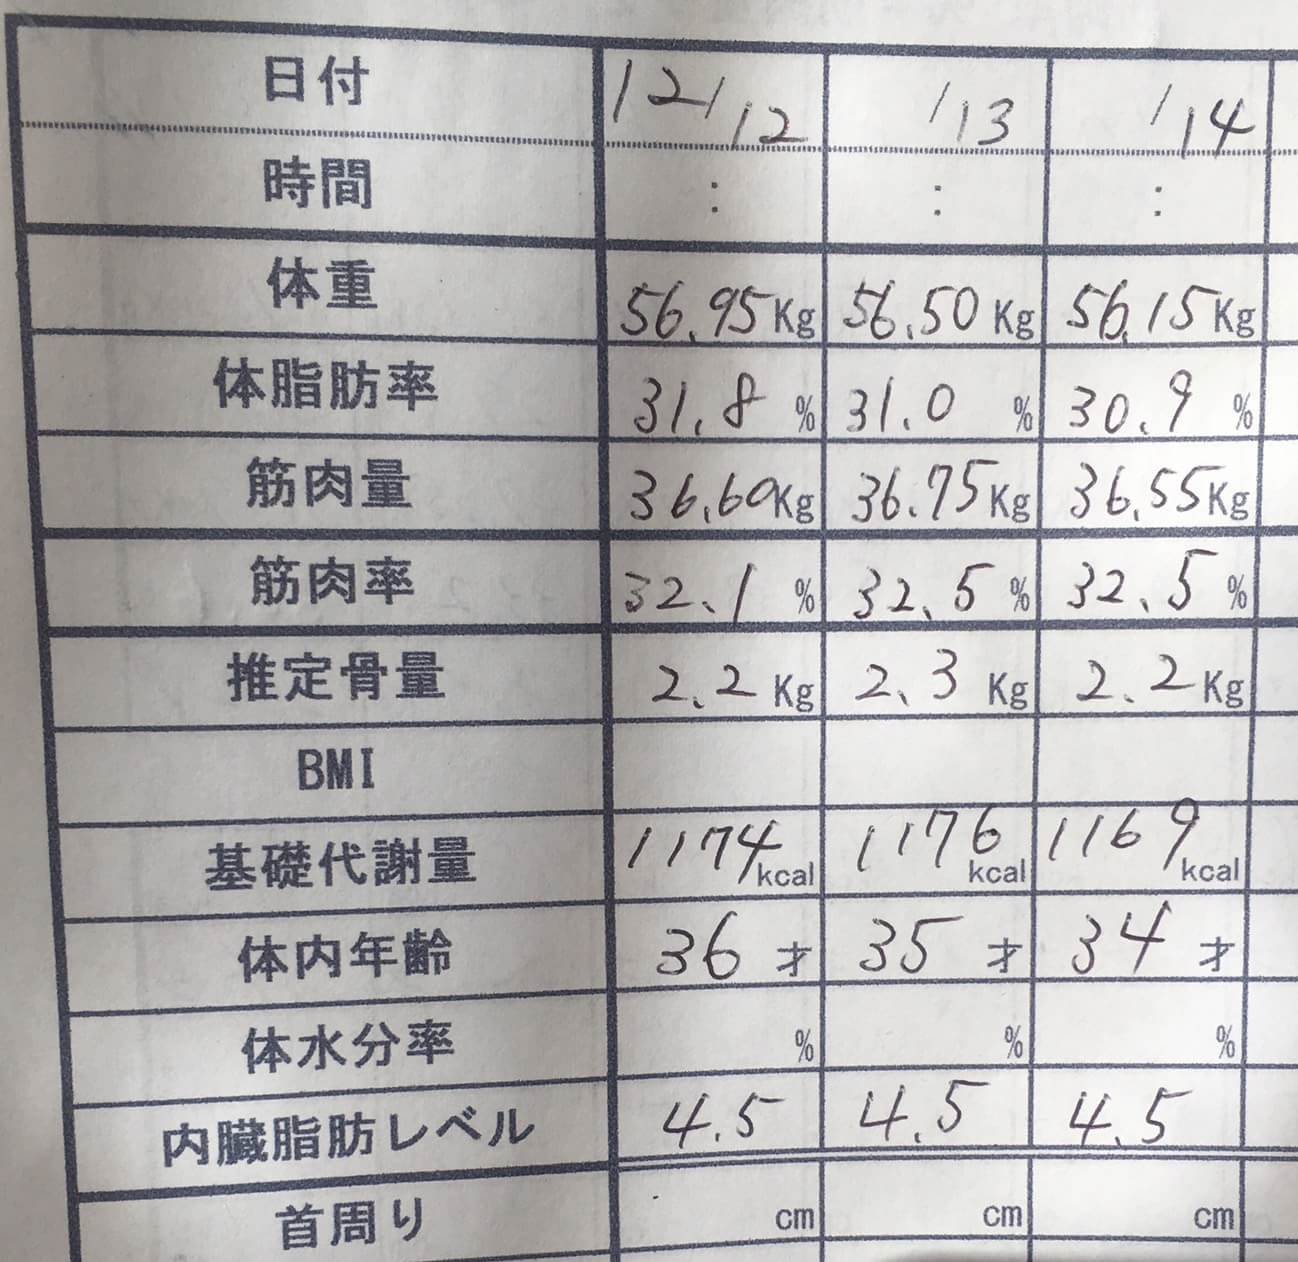 日付 12/12 /13 /14
時間 : : :
体重 56.95Kg 56.50Kg 56.15Kg
体脂肪率 31.8% 31.0% 30.9%
筋肉量 36.60Kg 36.75Kg 36.55Kg
筋肉率 32.1% 32.5% 32.5%
推定骨量 2.2Kg 2.3Kg 2.2Kg
BMI
基礎代謝量 1174kcal 1176kcal 1169kcal
体内年齢 36才 35才 34才
体水分率 % % %
内臓脂肪レベル 4.5 4.5 4.5
首周り cm cm cm